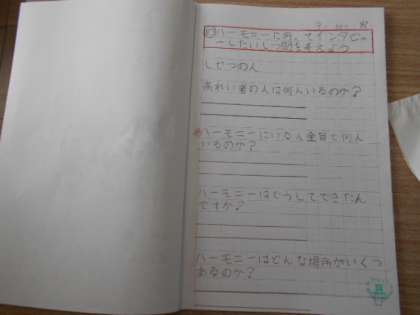 ハーモニーに向ってインタビュ
ーしたいしつ問を考えよう
しせつの人
お年い者の人は何人いるのか?
ハーモニーにいる人全員で何人
いるのか?
ハーモニーはどうしてできたん
ですか?
ハーモニーはどんな場所がいくつ
あるのか?